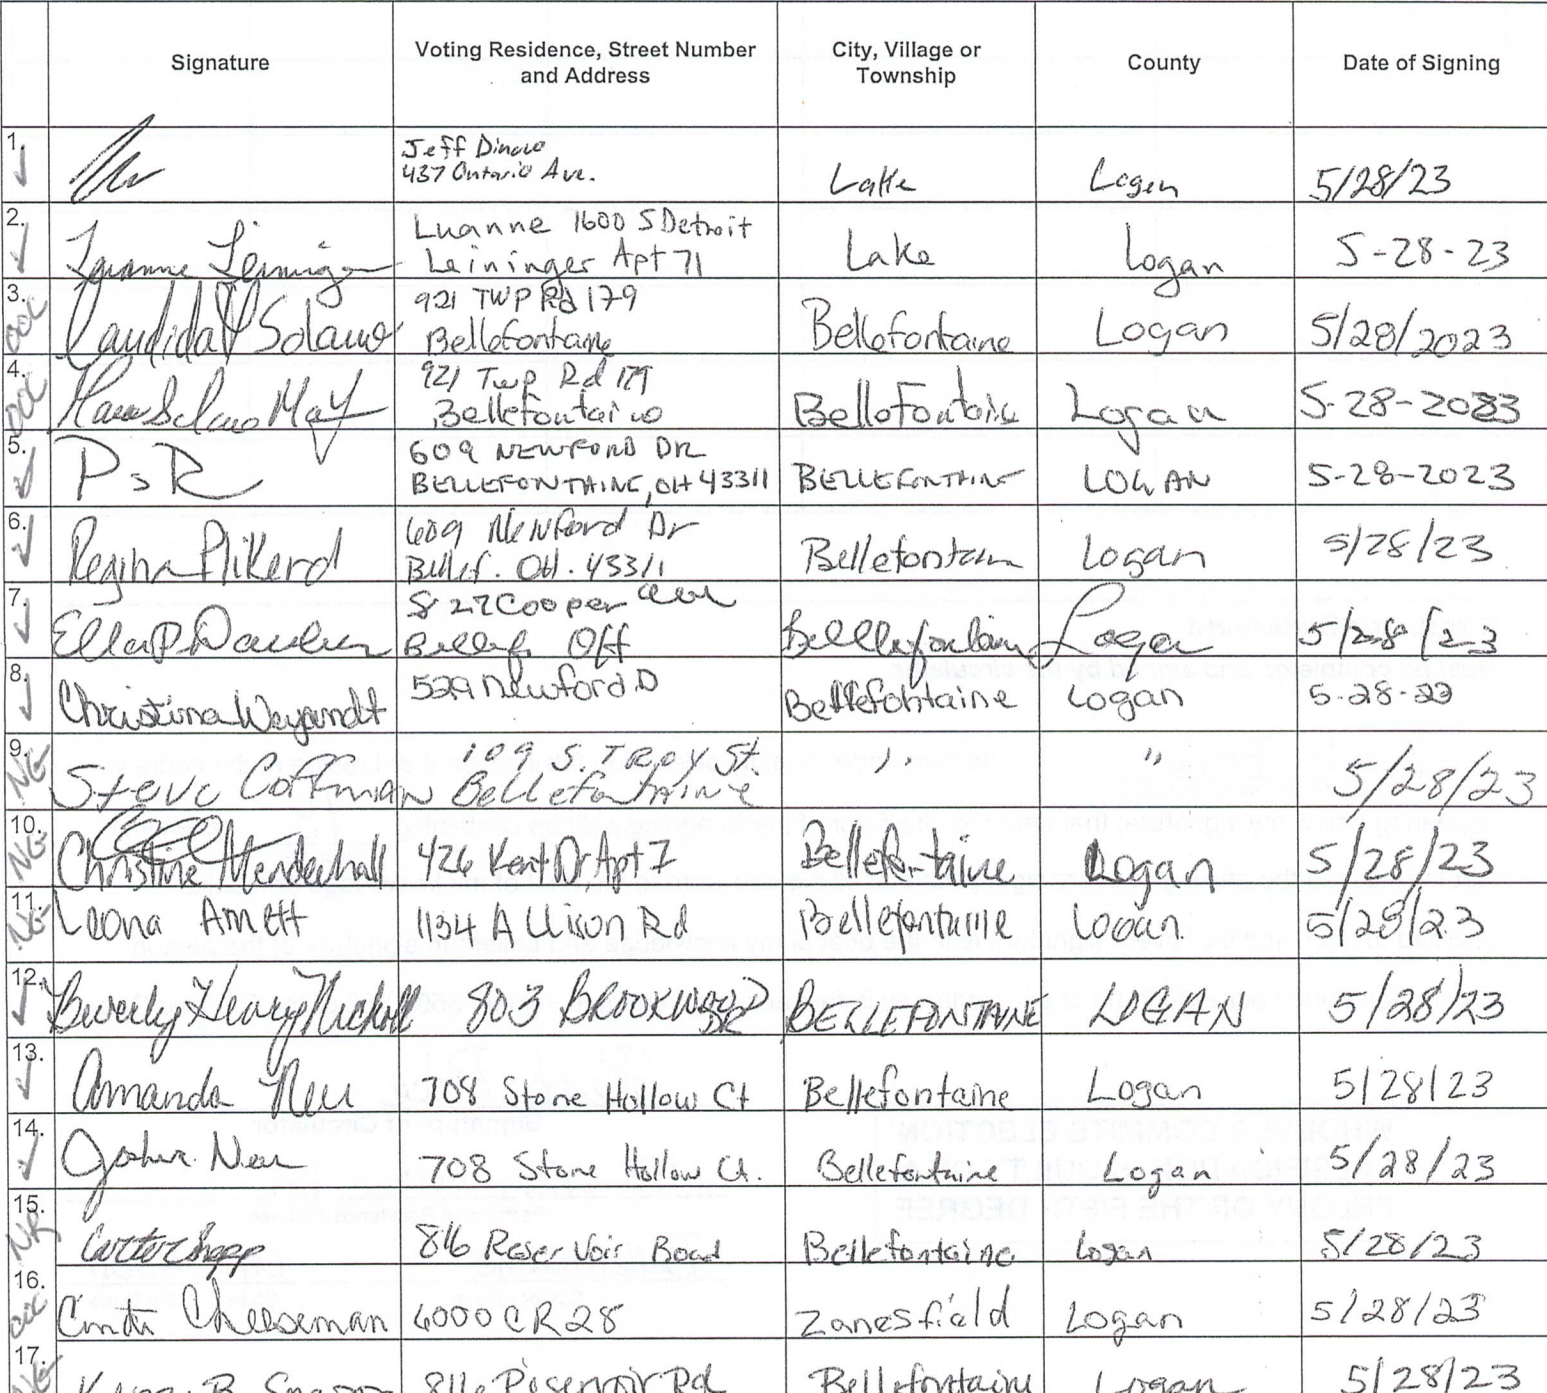 Signature
Voting Residence, Street Number and Address
City, Village or Township
County
Date of Signing
1.
Jeff
437 Ontario Ave.
Lake
Logan
5/28/23
2.
Luanne 1600 S Detroit
Leininger Apt 71
Lake
Logan
5-28-23
3.
OOC
Candida Solano
921 TWP Rd 179
Bellefontaine
Bellefontaine
Logan
5/28/2023
4.
OOC
May
921 Twp Rd 179
Bellefontaine
Bellefontaine
Logan
5-28-2023
5.
609 NEWFORD DR
BELLEFONTAINE, OH 43311
BELLEFONTAINE
LOGAN
5-28-2023
6.
Regina Plikerd
609 Newford Dr
Bellef. OH. 43311
Bellefontain
Logan
5/28/23
7.
Ella P
827 Cooper Ave
Bellef OH
Bellefontaine
Logan
5/28/23
8.
Christina Weyandt
529 Newford D
Bellefontaine
Logan
5-28-23
9.
NG
Steve Coffman
109 S. TROY St.
Bellefontaine
"
"
5/28/23
10.
NG
Christine Mendenhall
426 Kent Dr Apt I
Bellefontaine
Logan
5/28/23
11.
NG
Leona Arnett
1134 Allison Rd
Bellefontaine
Logan
5/28/23
12.
Beverly Henry Nicholl
803 BROOKWOOD
DR
BELLEFONTAINE
LOGAN
5/28/23
13.
Amanda Neu
708 Stone Hollow Ct
Bellefontaine
Logan
5/28/23
14.
Joshua Neu
708 Stone Hollow Ct.
Bellefontaine
Logan
5/28/23
15.
NR
Carter
816 Reservoir Road
Bellefontaine
Logan
5/28/23
16.
OOC
Cheeseman
6000 CR 28
Zanesfield
Logan
5/28/23
17.
NG
B.
816 Reservoir Rd
Bellefontaine
Logan
5/28/23